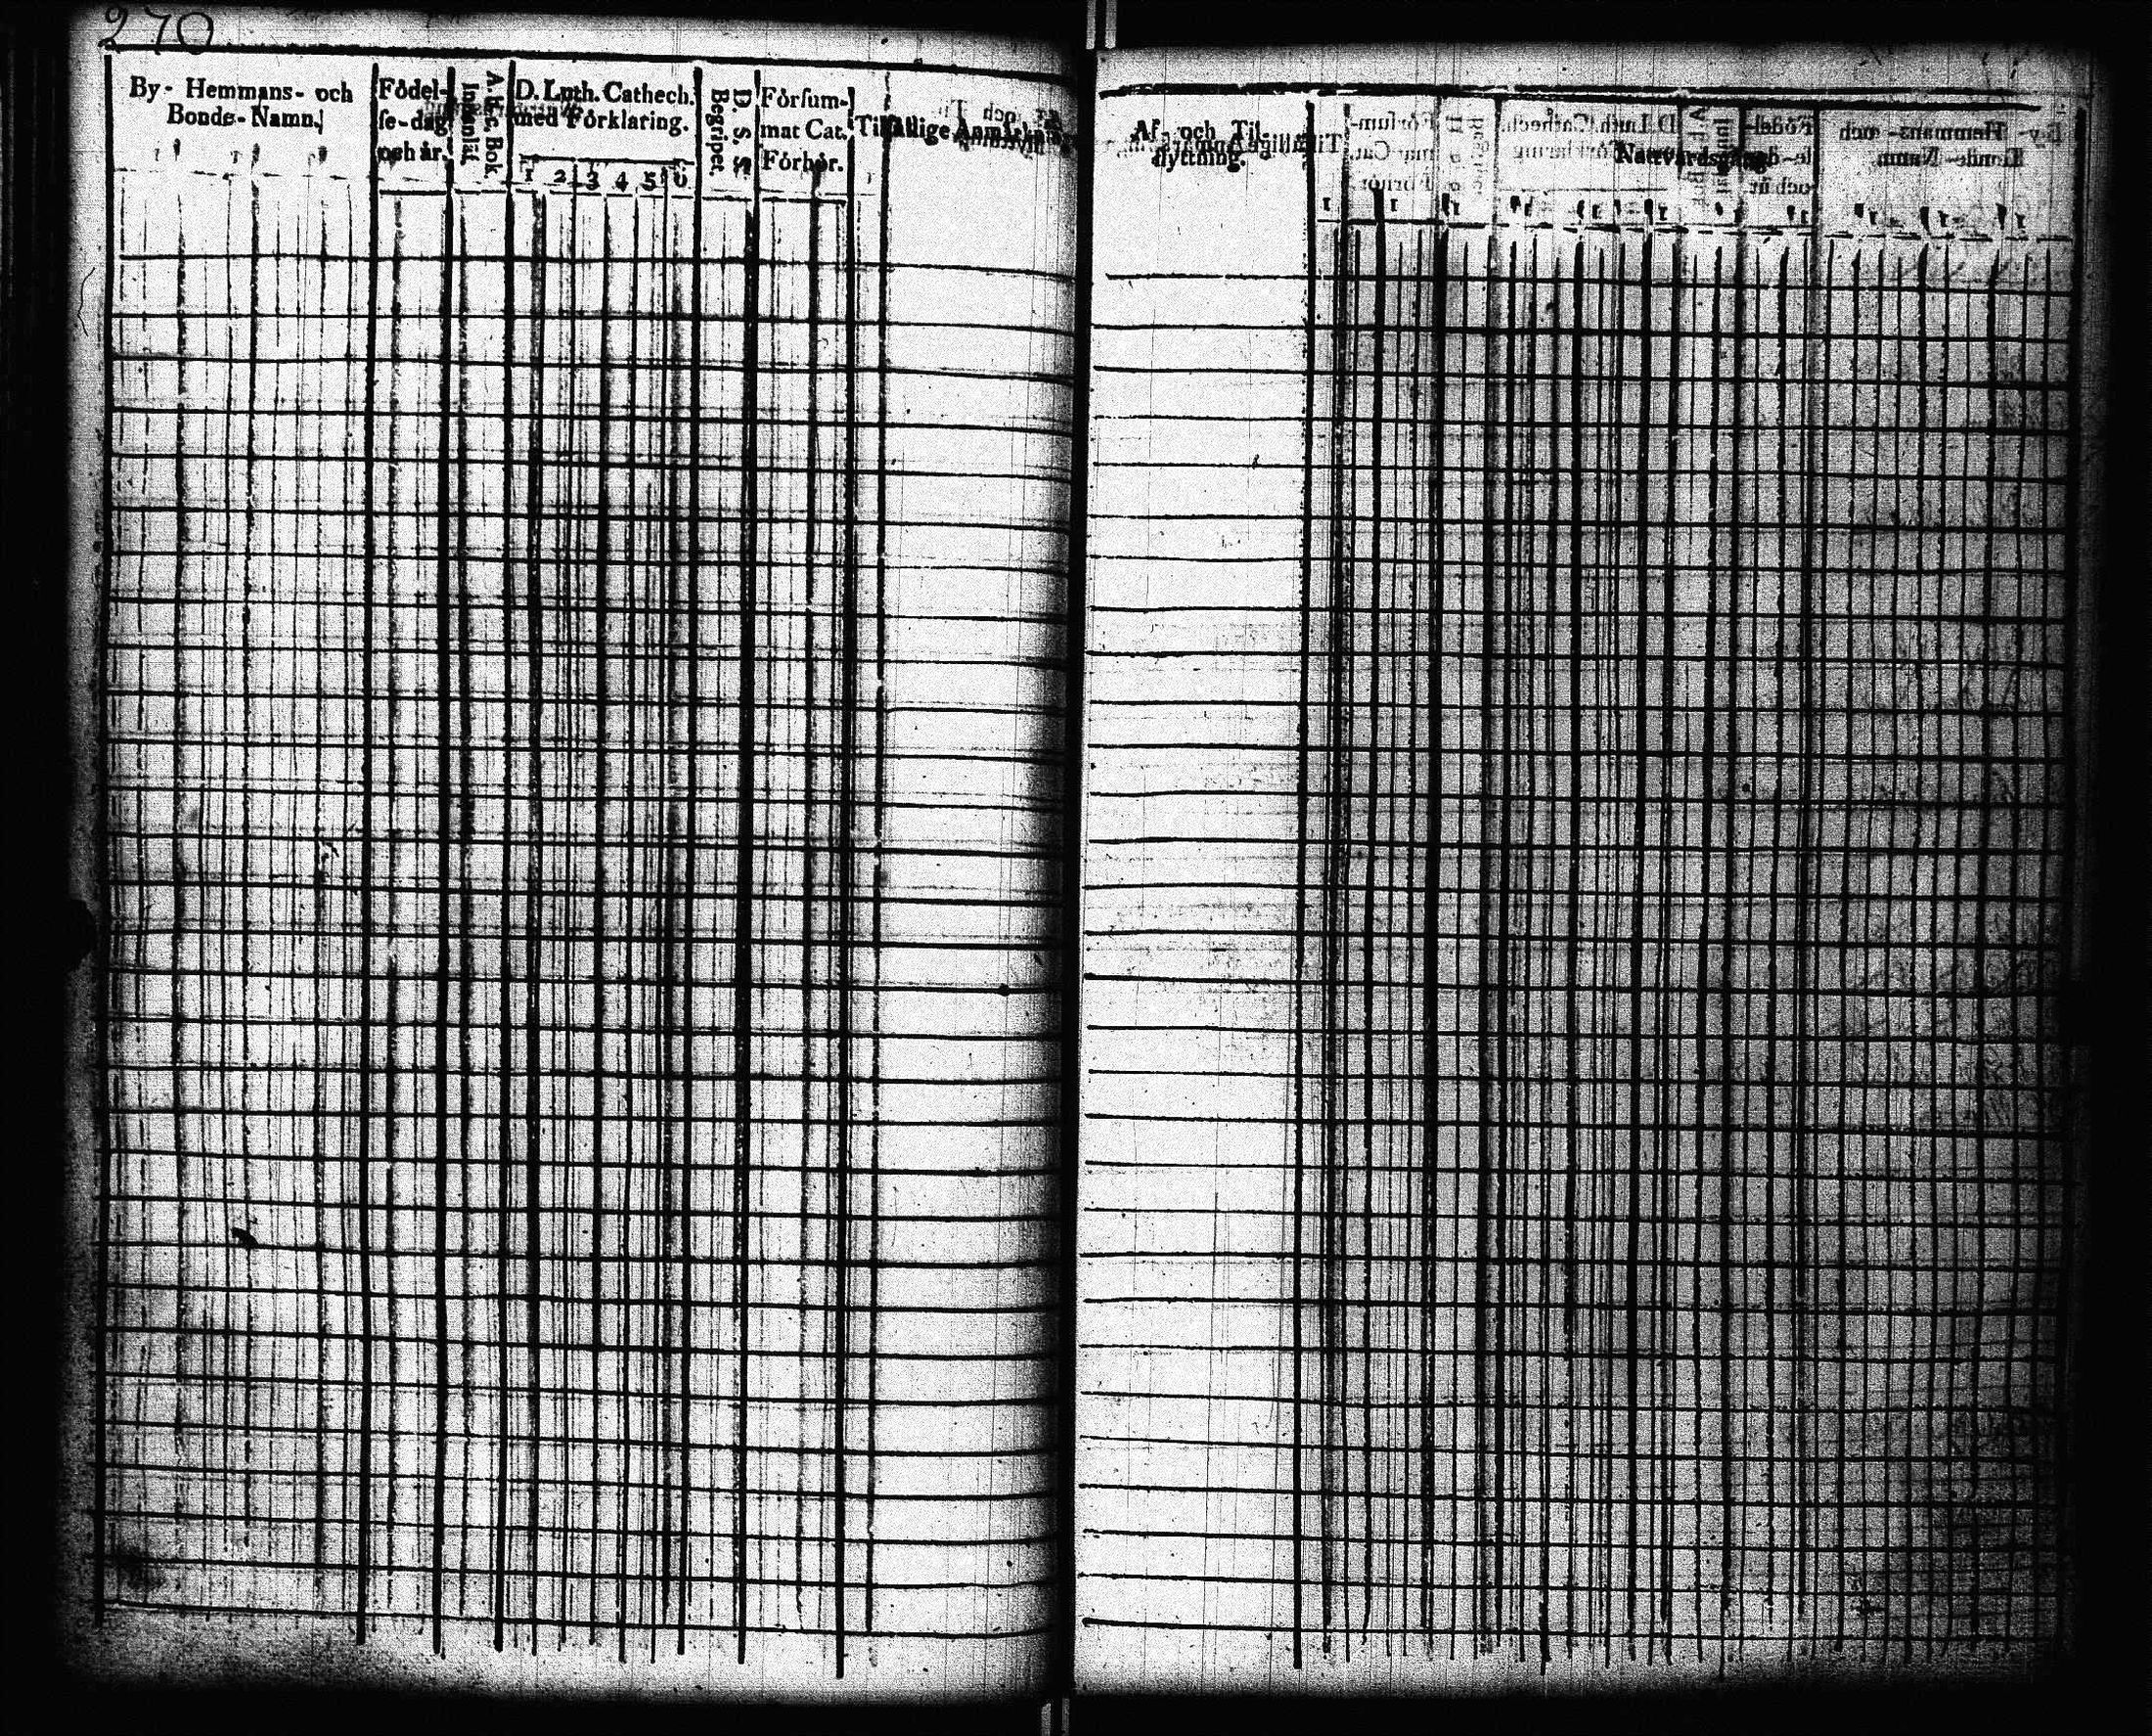 270
By- Hemmans- och
Bonde-Namn.
Födel-
se-dag
och år.
A. B. C. Bok
Innanläs.
D. Luth. Cathech.
med Förklaring.
1 2 3 4 5 6
D. S. S.
Begripet.
Försum-
mat Cat.
Förhör.
Tilfällige Anmärkn
Af- och Til-
flyttning.
Nattvardsgång